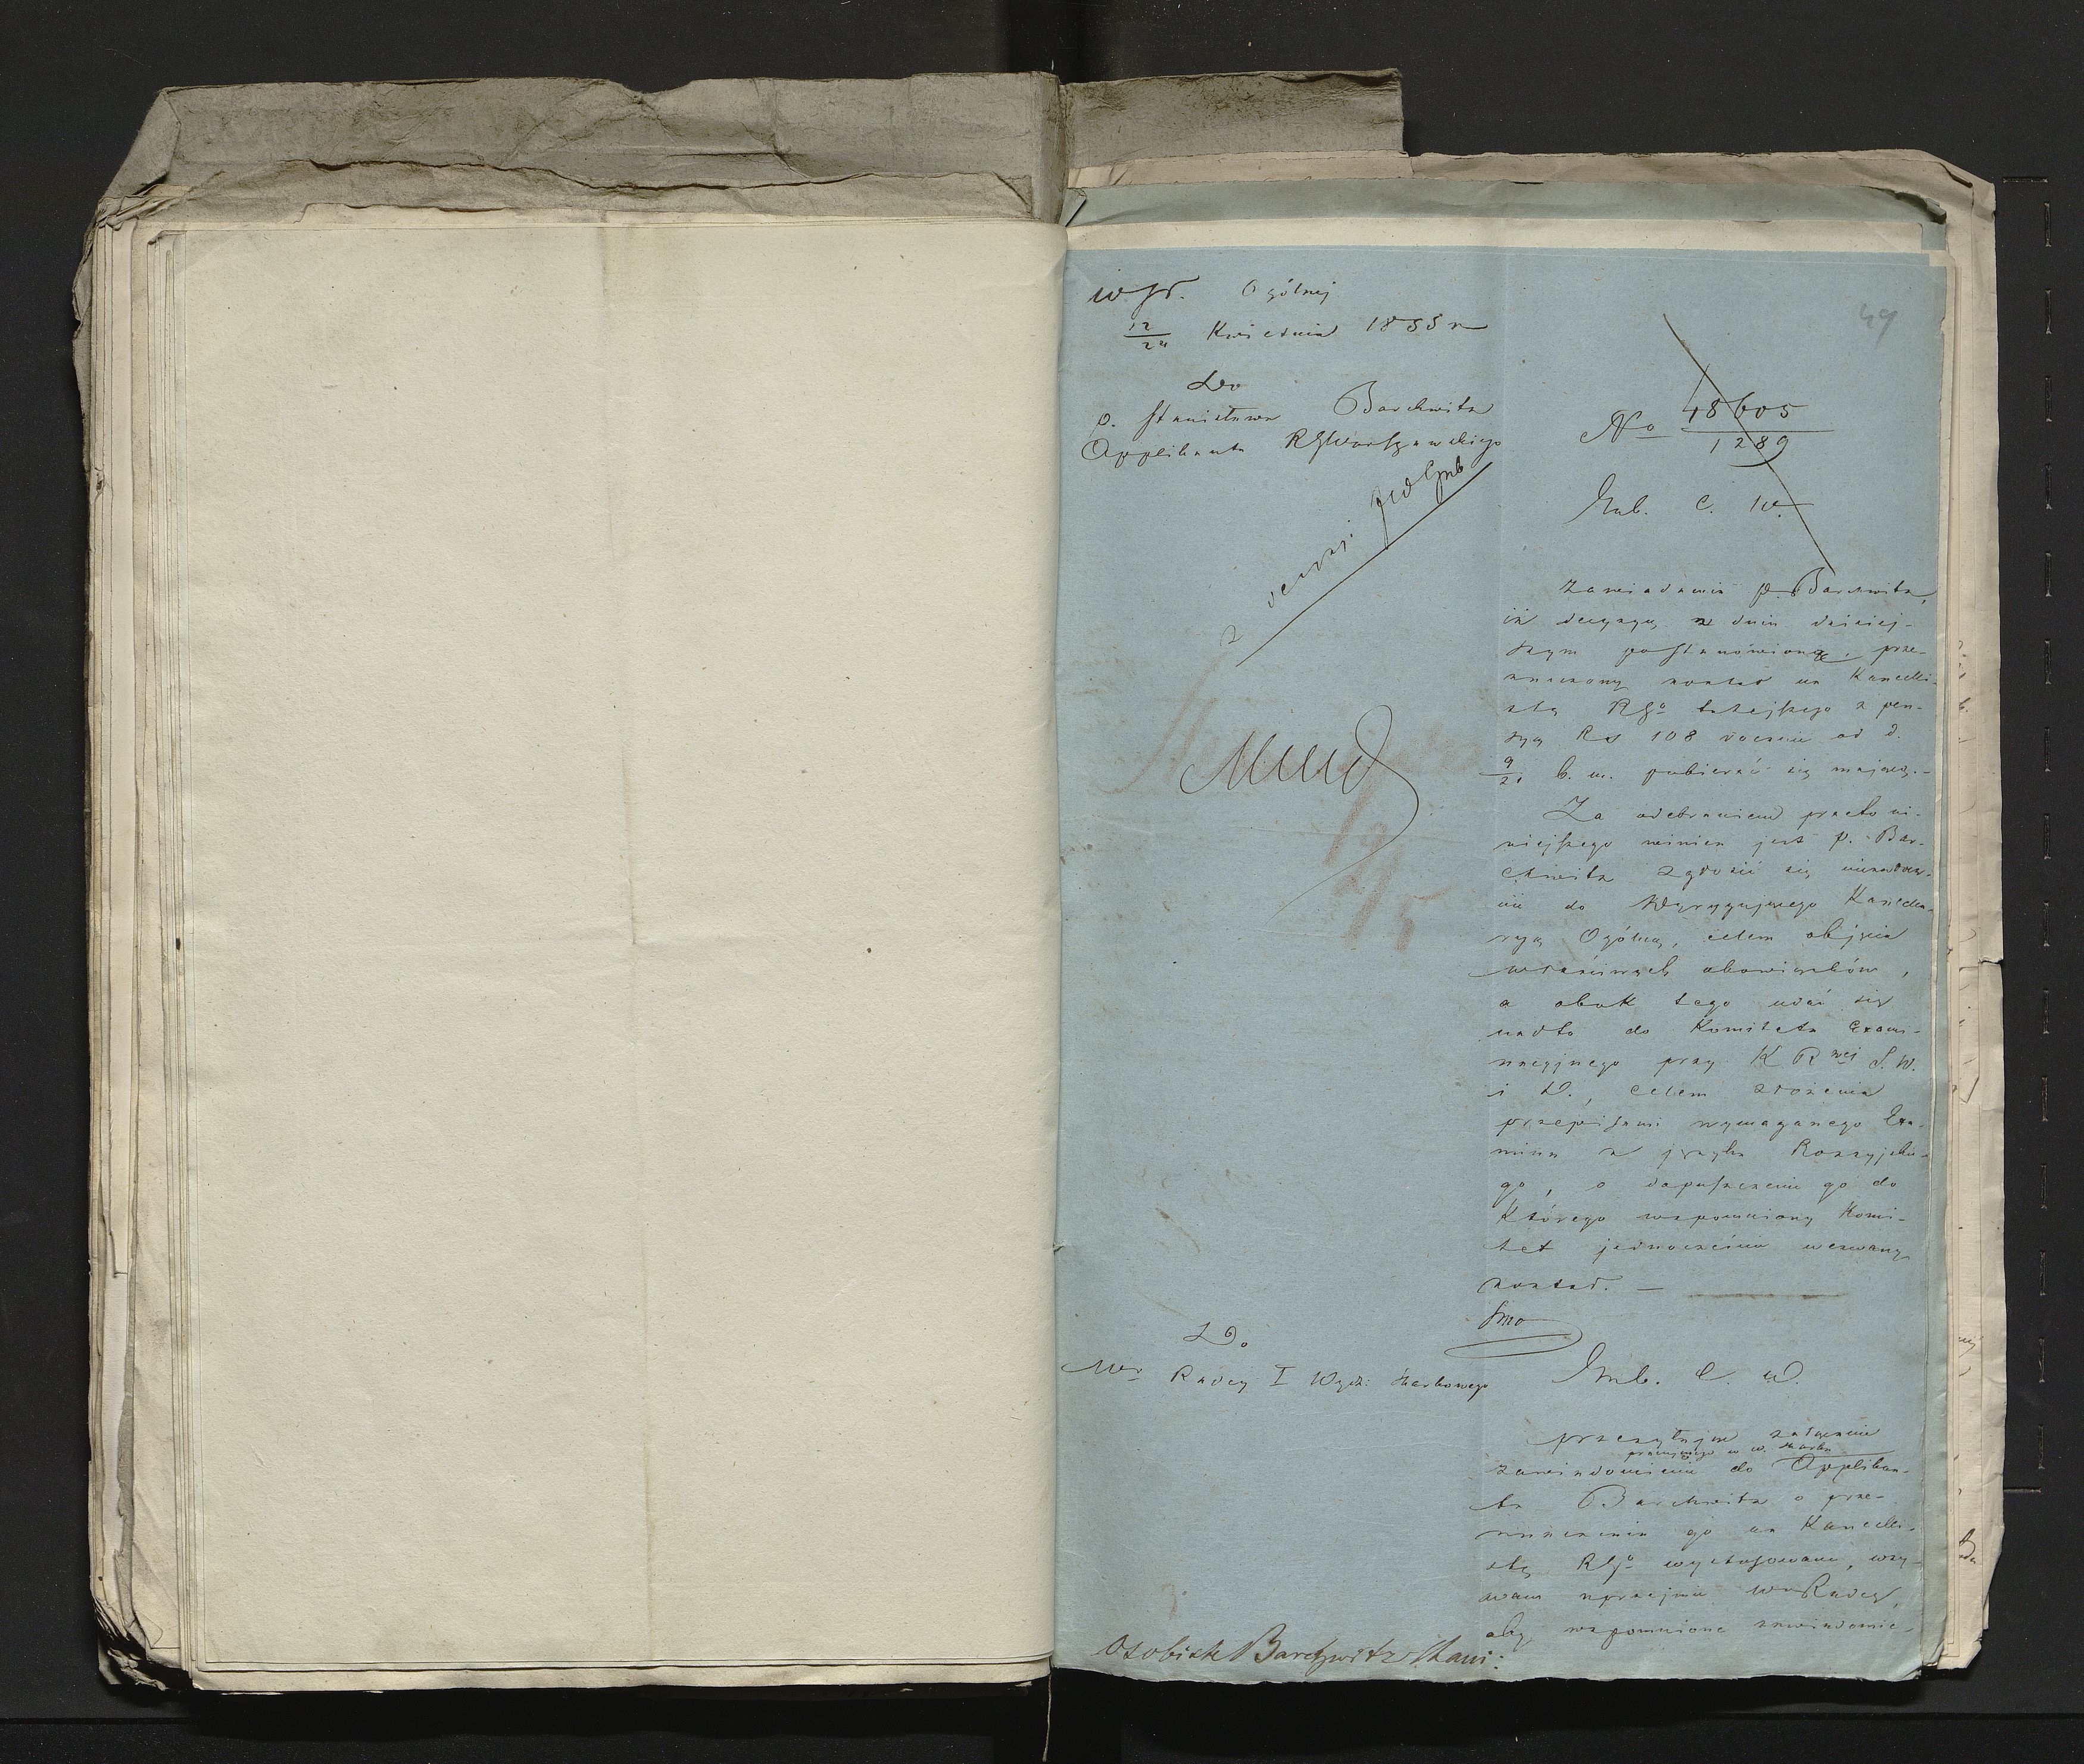 49
Ogólnej
12/24 Kwietnia 1855 r
Do
p. Stanisława Barchwitz
Applikanta RGWarszawskiego
No 48605/1289
Gub. C. W.
zawiadamia p. Barchwitz,
iż decyzyą w dniu dzisiej-
szym postanowioną, prze-
znaczony został na Kancelli-
stę RGo tutejszego z pen-
syą Rs 108 rocznie od d.
9/21 b. m. pobierać się mającą.-
Za odebraniem przeto ni-
niejszego winien jest p. Bar-
chwitz zgłosić się niezwłocz-
nie do Dyrygującego Kancela-
ryą Ogólną, celem objęcia
właściwych obowiązków,
a obok tego udać się
nadto do Komitetu Exami-
nacyjnego przy K R wej S. W.
i D., celem złożenia
przepisami wymaganego Exa-
minu z języka Rossyjskie-
go, o dopuszczenie go do
którego wspomniony Komi-
tet jednocześnie wezwany
został. —
Mund
9/5
Do
Wo Radcy I Wydz: Skarbowego
Gub. C. W.
przesyłając załączne
pracującego w W. Skarbu
zawiadomienie do Applikan-
ta Barchwitz o prze-
znaczeniu go na Kancelli-
stę RGo wystosowane, wzy-
wam uprzejmie WoRadcę,
aby wspomnione zawiadomie-
Osobiste Barchwitz Stani: